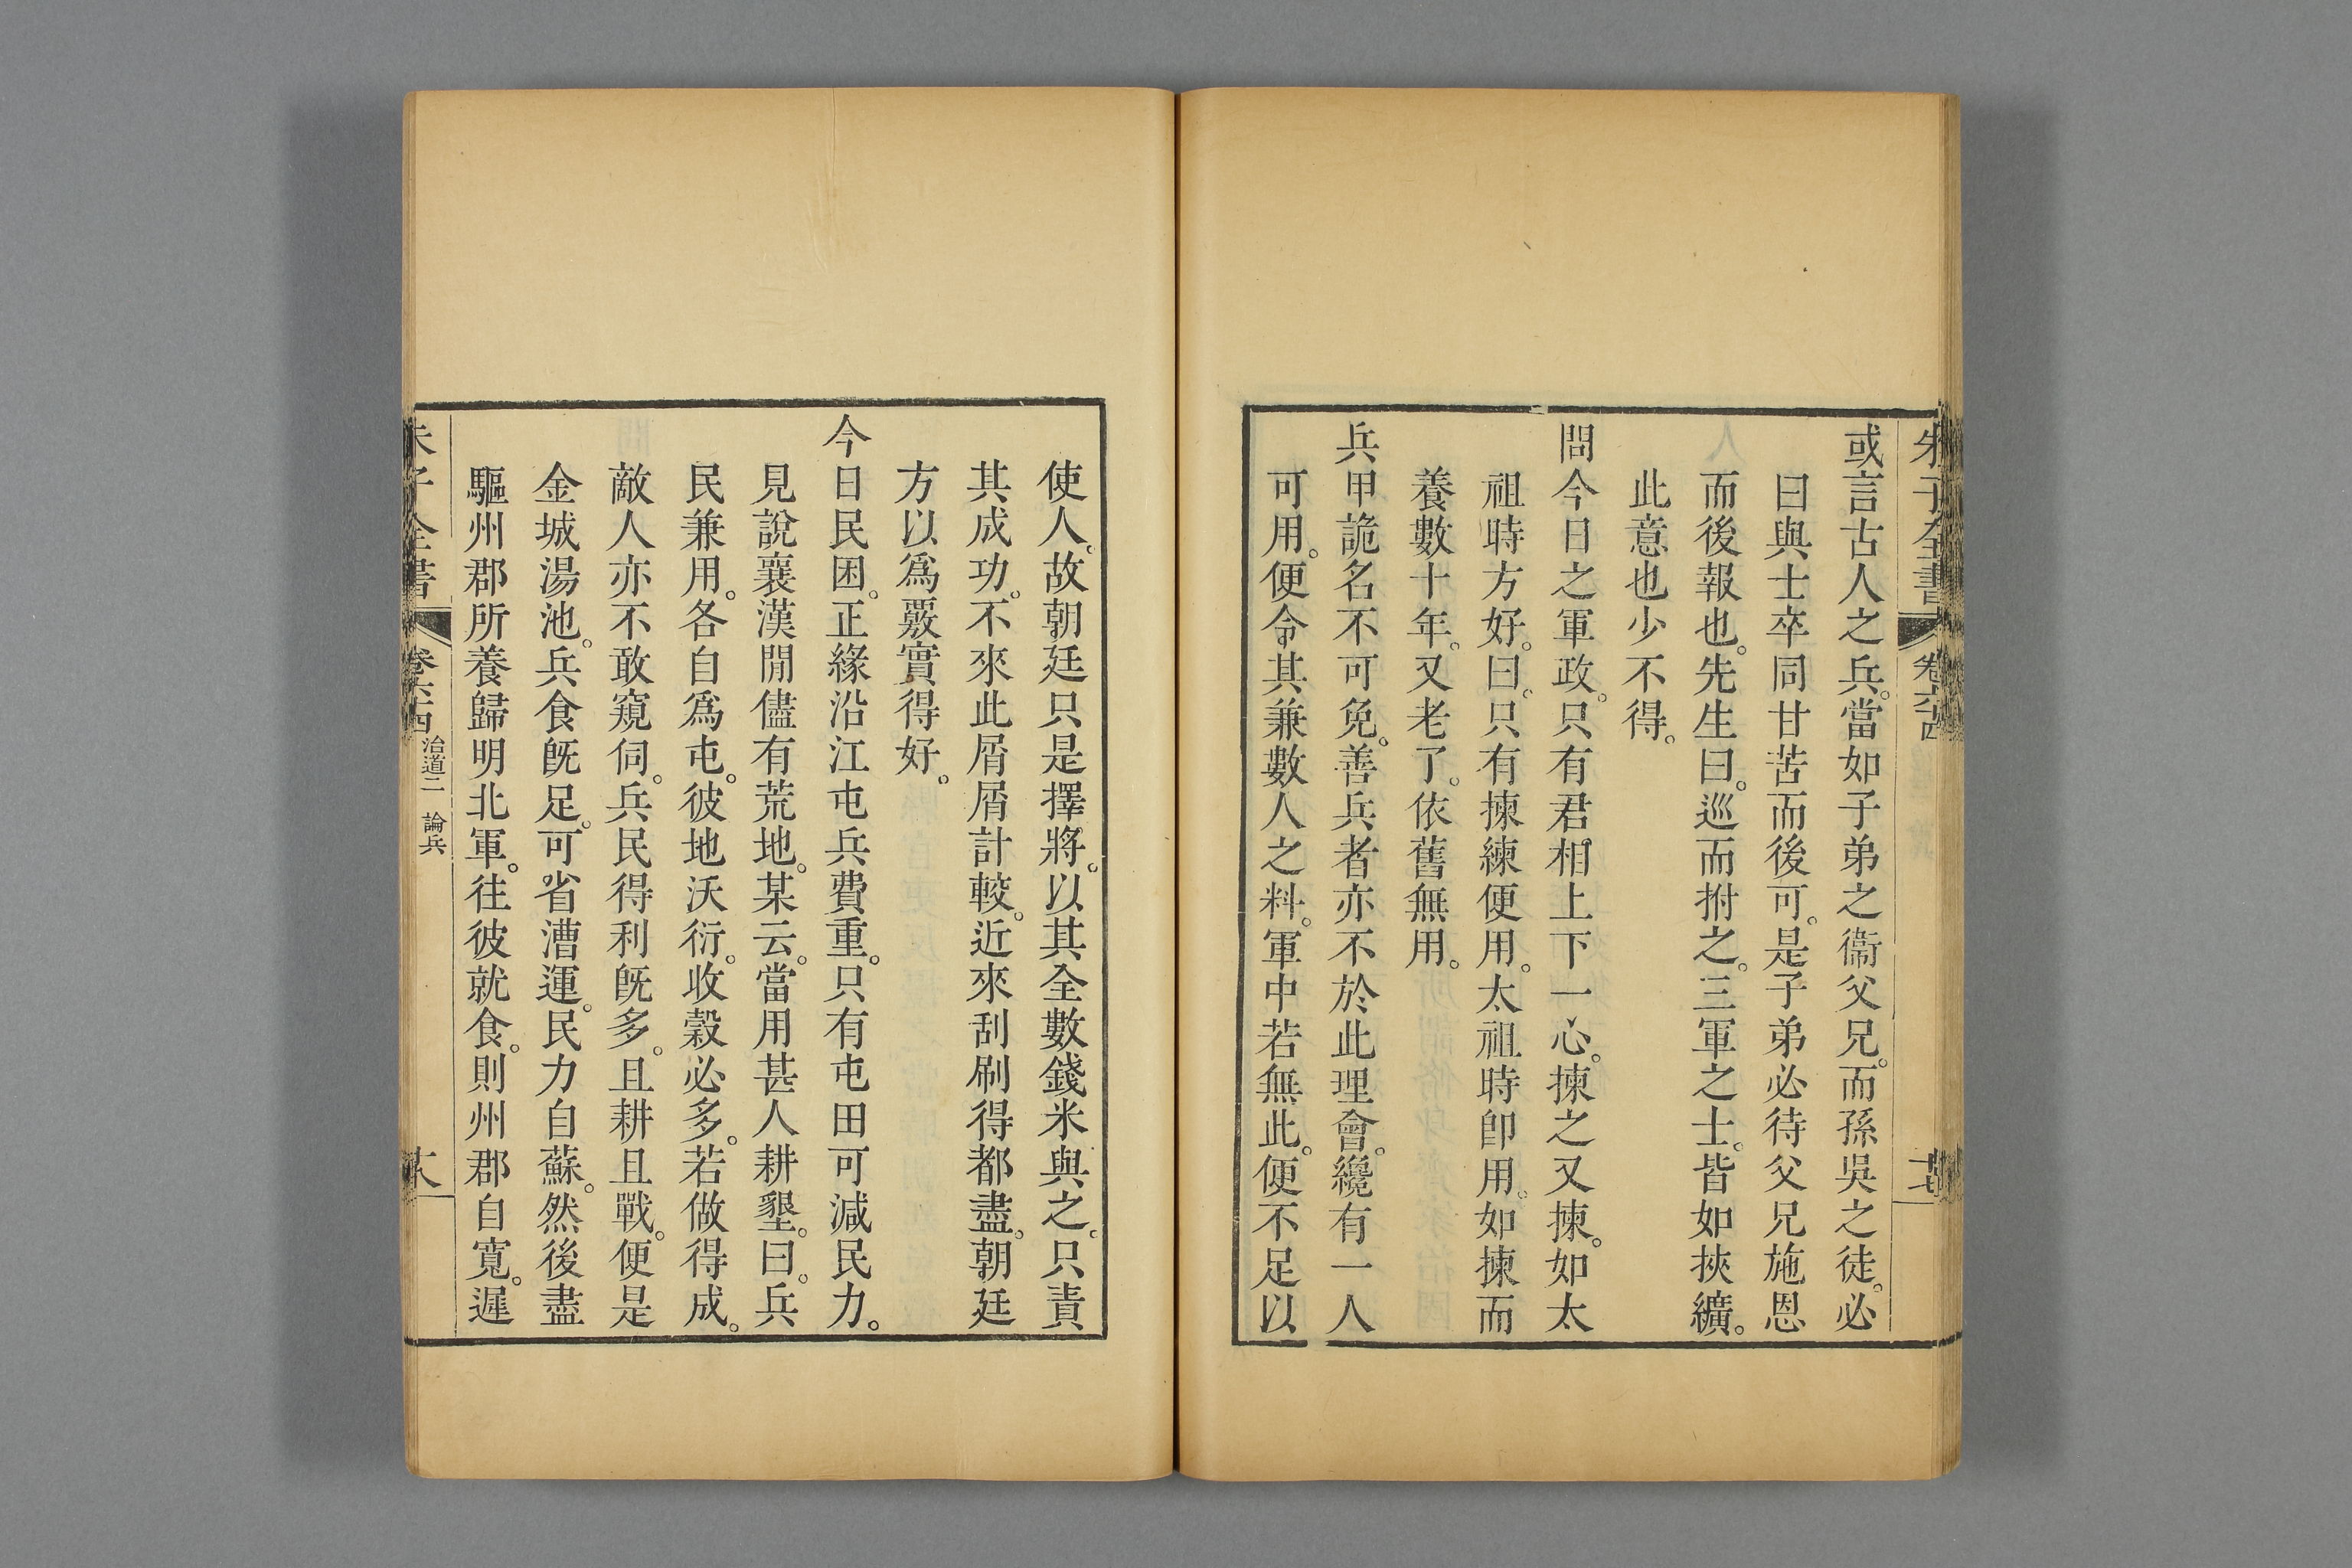 朱子全書 卷六十四 十七
或言古人之兵。當如子弟之衞父兄。而孫吳之徒。必
曰與士卒同甘苦而後可。是子弟必待父兄施恩
而後報也。先生曰。巡而拊之。三軍之士。皆如挾纊。
此意也少不得。
問今日之軍政。只有君相上下一心。揀之又揀。如太
祖時方好。曰。只有揀練便用。太祖時卽用。如揀而
養數十年。又老了。依舊無用。
兵甲詭名不可免。善兵者亦不於此理會。纔有一人
可用。便令其兼數人之料。軍中若無此。便不足以
使人。故朝廷只是擇將。以其全數錢米與之。只責
其成功。不來此屑屑計較。近來刮刷得都盡。朝廷
方以爲覈實得好。
今日民困。正緣沿江屯兵費重。只有屯田可減民力。
見說襄漢閒儘有荒地。某云。當用甚人耕墾。曰。兵
民兼用。各自爲屯。彼地沃衍。收穀必多。若做得成。
敵人亦不敢窺伺。兵民得利旣多。且耕且戰。便是
金城湯池。兵食旣足。可省漕運。民力自蘇。然後盡
驅州郡所養歸明北軍。往彼就食。則州郡自寬。遲
朱子全書 卷六十四 治道二 論兵 十八